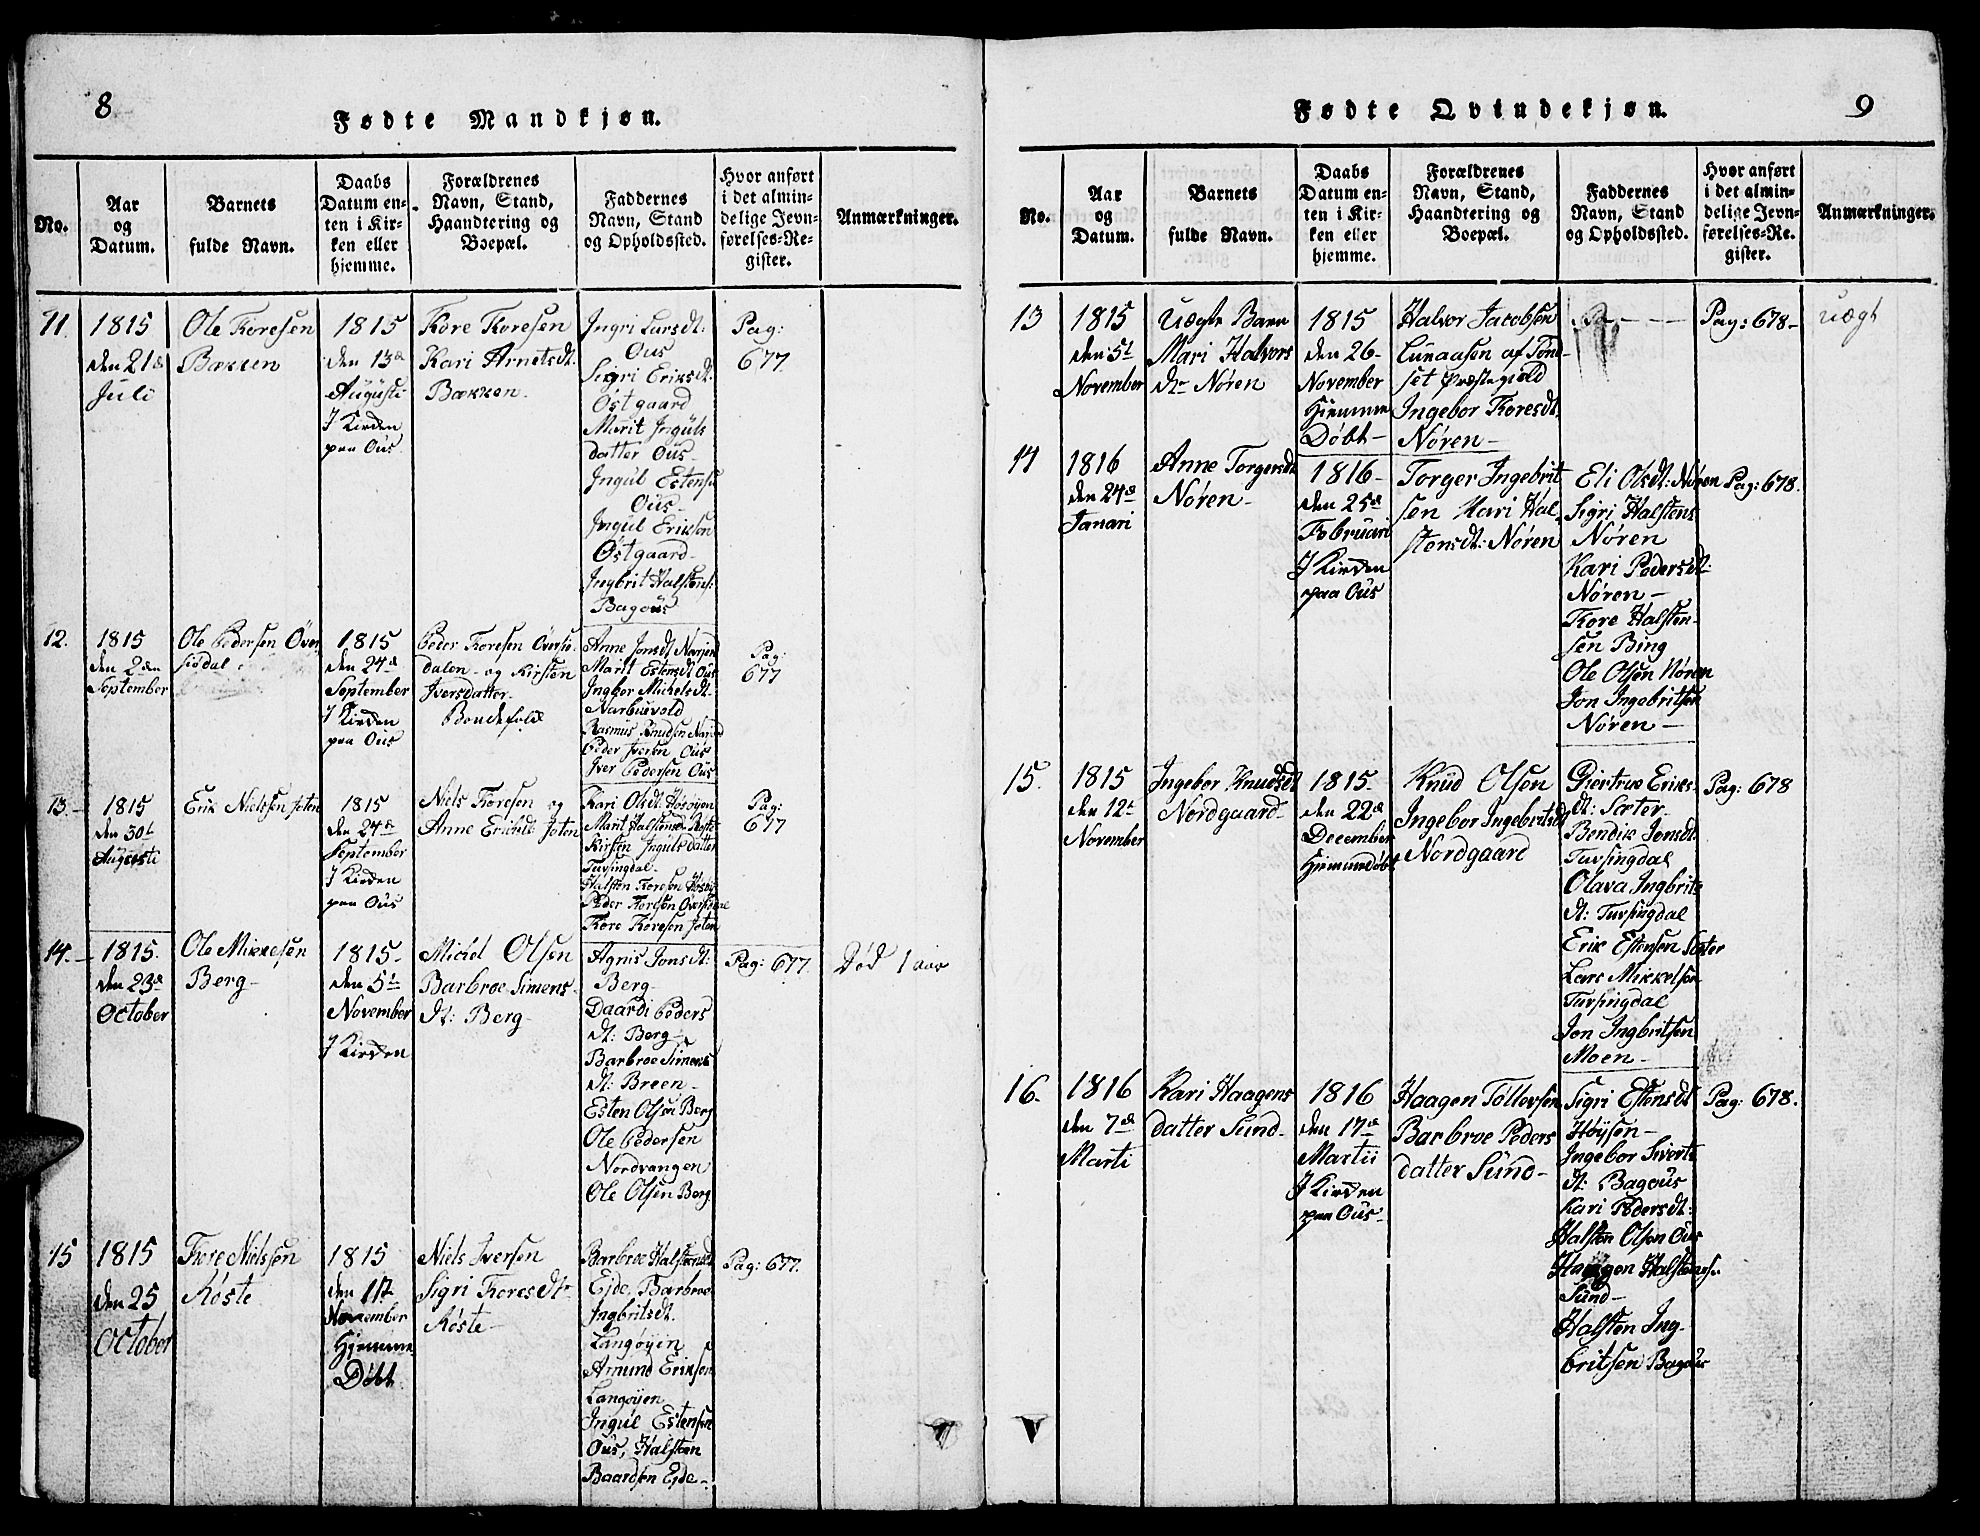 8
Fødte Mandkjøn.
No.
Aar
og
Datum.
Barnets
fulde Navn.
Daabs
Datum en-
ten i Kir-
ken eller
hjemme.
Forældrenes
Navn, Stand,
Haandtering og
Boepæl.
Faddernes
Navn, Stand
og Opholdssted.
Hvor anført
i det almin-
delige Jevn-
førelses-Re-
gister.
Anmærkninger.
11.
1815
den 21de
Juli
Ole Toresen
Bakken
1815
den 13de
Augusti
I Kirken
paa Ous
Tore Toresen
Kari Arnetsdt.
Bakken.
Ingri Larsdt:
Ous
Sigri Eriksdt.
Østgaard
Marit Inguls
datter Ous-
Ingul Estens
Ous-
Ingul Eriksen
Østgaard-
Ingbrit Halstens:
Bagous
Pag:
677
12.
1815
den 2den
September
Ole Pedersen Over
sisdal
1815
den 24de
September
I Kirken
paa Ous
Peder Toresen Oversis
dalen- og Kirsten
Iversdatter-
Bondefolk
Anne Jonsdt
Marit Estensdt Ous
Ingbor Michelsdt:
Narbuvold
Rasmus Knudsen
Peder Iversen Ous
Iver Pedersen Ous
Pag:
677
13.-
1815
den 30te
Augusti
Erik Nielssen Joten
1815
den 24de
September
I Kirken
paa Ous
Niels Toresen og
Anne Eriksdt Joten
Kari Olsdt:
Marit Halstensdt Røste
Kirsten Ingulsdatter
Tufsingdal-
Halsten Toresen
Peder Toresen
Tore Toresen Joten
Pag:
677
14.-
1815.
den 23de
October
Ole Mikkelsen
Berg-
1815-
den 5te
November
I Kirken
Michel Olsen
Barbroe Simens-
dt: Berg-
Agnis Jonsdt:
Berg-
Daardi Peders
dt: Berg-
Barbroe Simens
dt: Breen-
Esten Olsen Berg
Ole Pedersen
Nordvangen
Ole Olsen Berg
Pag: 677.
Død 1 aar
15
1815
den 25
October
Tore Nielssen
Røste
1815
den 11te
November
Hjemme
Døbt
Niels Iversen
Sigri Toresdtr
Røste-
Barbroe Halstensdt
Ejde, Barbroe
Ingbritsdt.
Langøyen
Amund Eriksen
Langøyen
Ingul Estensen
Ous, Halsten
Baardsen Ejde-
Pag: 677.
9
Fødte Qvindekjøn.
No.
Aar
og
Datum.
Barnets
fulde Navn.
Daabs
Datum en-
ten i Kir-
ken eller
hjemme.
Forældrenes
Navn, Stand,
Haandtering og
Boepæl.
Faddernes
Navn, Stand
og Opholdssted.
Hvor anført
i det almin-
delige Jevn-
førelses-Re-
gister.
Anmærkninger.
13
1815
den 5t
November
Uægte Barn
Mari Halvors
dtr Nøren
1815
den 26-
November
Hjemme
Døbt-
Halvor Jacobsen
Lunaasen af Tøn-
set Præstegield
Ingebor Toresdt.
Nøren-
Pag: 678-
uægt
14
1816
den 24de
Janari
Anne Torgersdt
Nøren-
1816-
den 25de
Februari
I Kirken
paa Ous
Torger Ingebrit
sen Kari Hal
stensdt: Nøren
Eli Olsdt: Nøren
Sigri Halstens
Nøren
Kari Pedersdt:
Nøren-
Tore Halsten-
sen Bing
Ole Olsen Nøren
Jon Ingebritsen
Nøren-
Pag: 678.
15.
1815
den 12te
November
Ingebor Knudsdt
Nordgaard-
1815-
den 22de
December
Hjemmedøbt
Knud Olsen
Ingebor Ingebritsdt
Nordgaard
Giertrue Eriks-
dt: Sæter-
Bendik Jonsdt
Tufsingdal
Olava Ingbrits
dt: Tufsingdal
Erik Estensen Sæter
Lars Mikkelsen
Tufsingdal
Jon Ingbritsen
Moen-
Pag: 678
16.
1816
den 7de
Marti
Kari Haagens
datter Sund-
1816
den 17de
Martii
I Kirken
paa Ous-
Haagen Tollevsen
Barbroe Peders
datter Sund-
Sigri Estensdt
Høysen-
Ingebor Siverts
dt: Bagous
Kari Pedersdt:
Halsten Olsen Ous
Haagen Halstens.
Sund-
Halsten Ing-
britsen Bagous
Pag: 678.